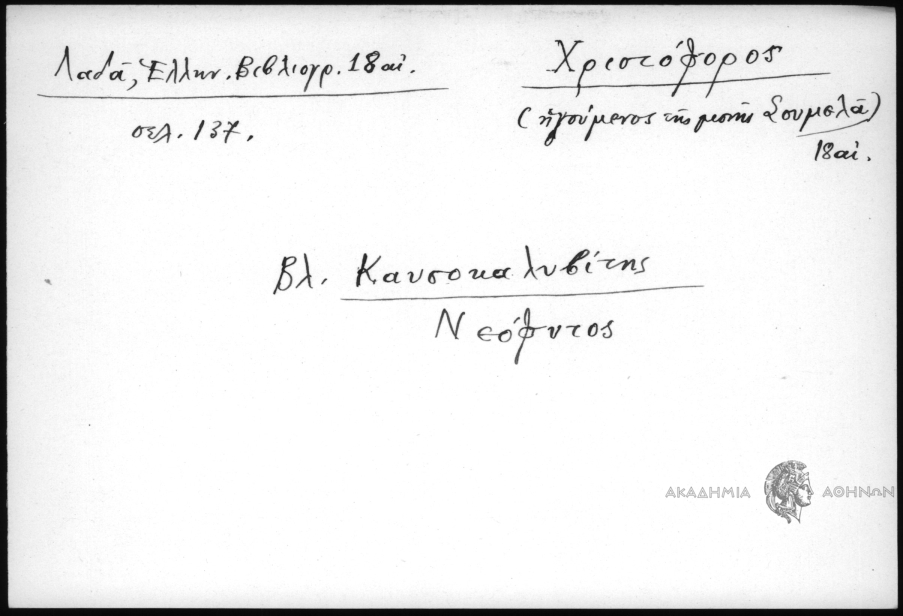 Λαδᾶ, Ἑλλην. Βιβλιογρ. 18 αἰ.
σελ. 137.
Χριστόφορος
(ἡγούμενος τῆς μονῆς Σουμελᾶ)
18 αἰ.
Βλ. Καυσοκαλυβίτης
Νεόφυτος
ΑΚΑΔΗΜΙΑ ΑΘΗΝΩΝ